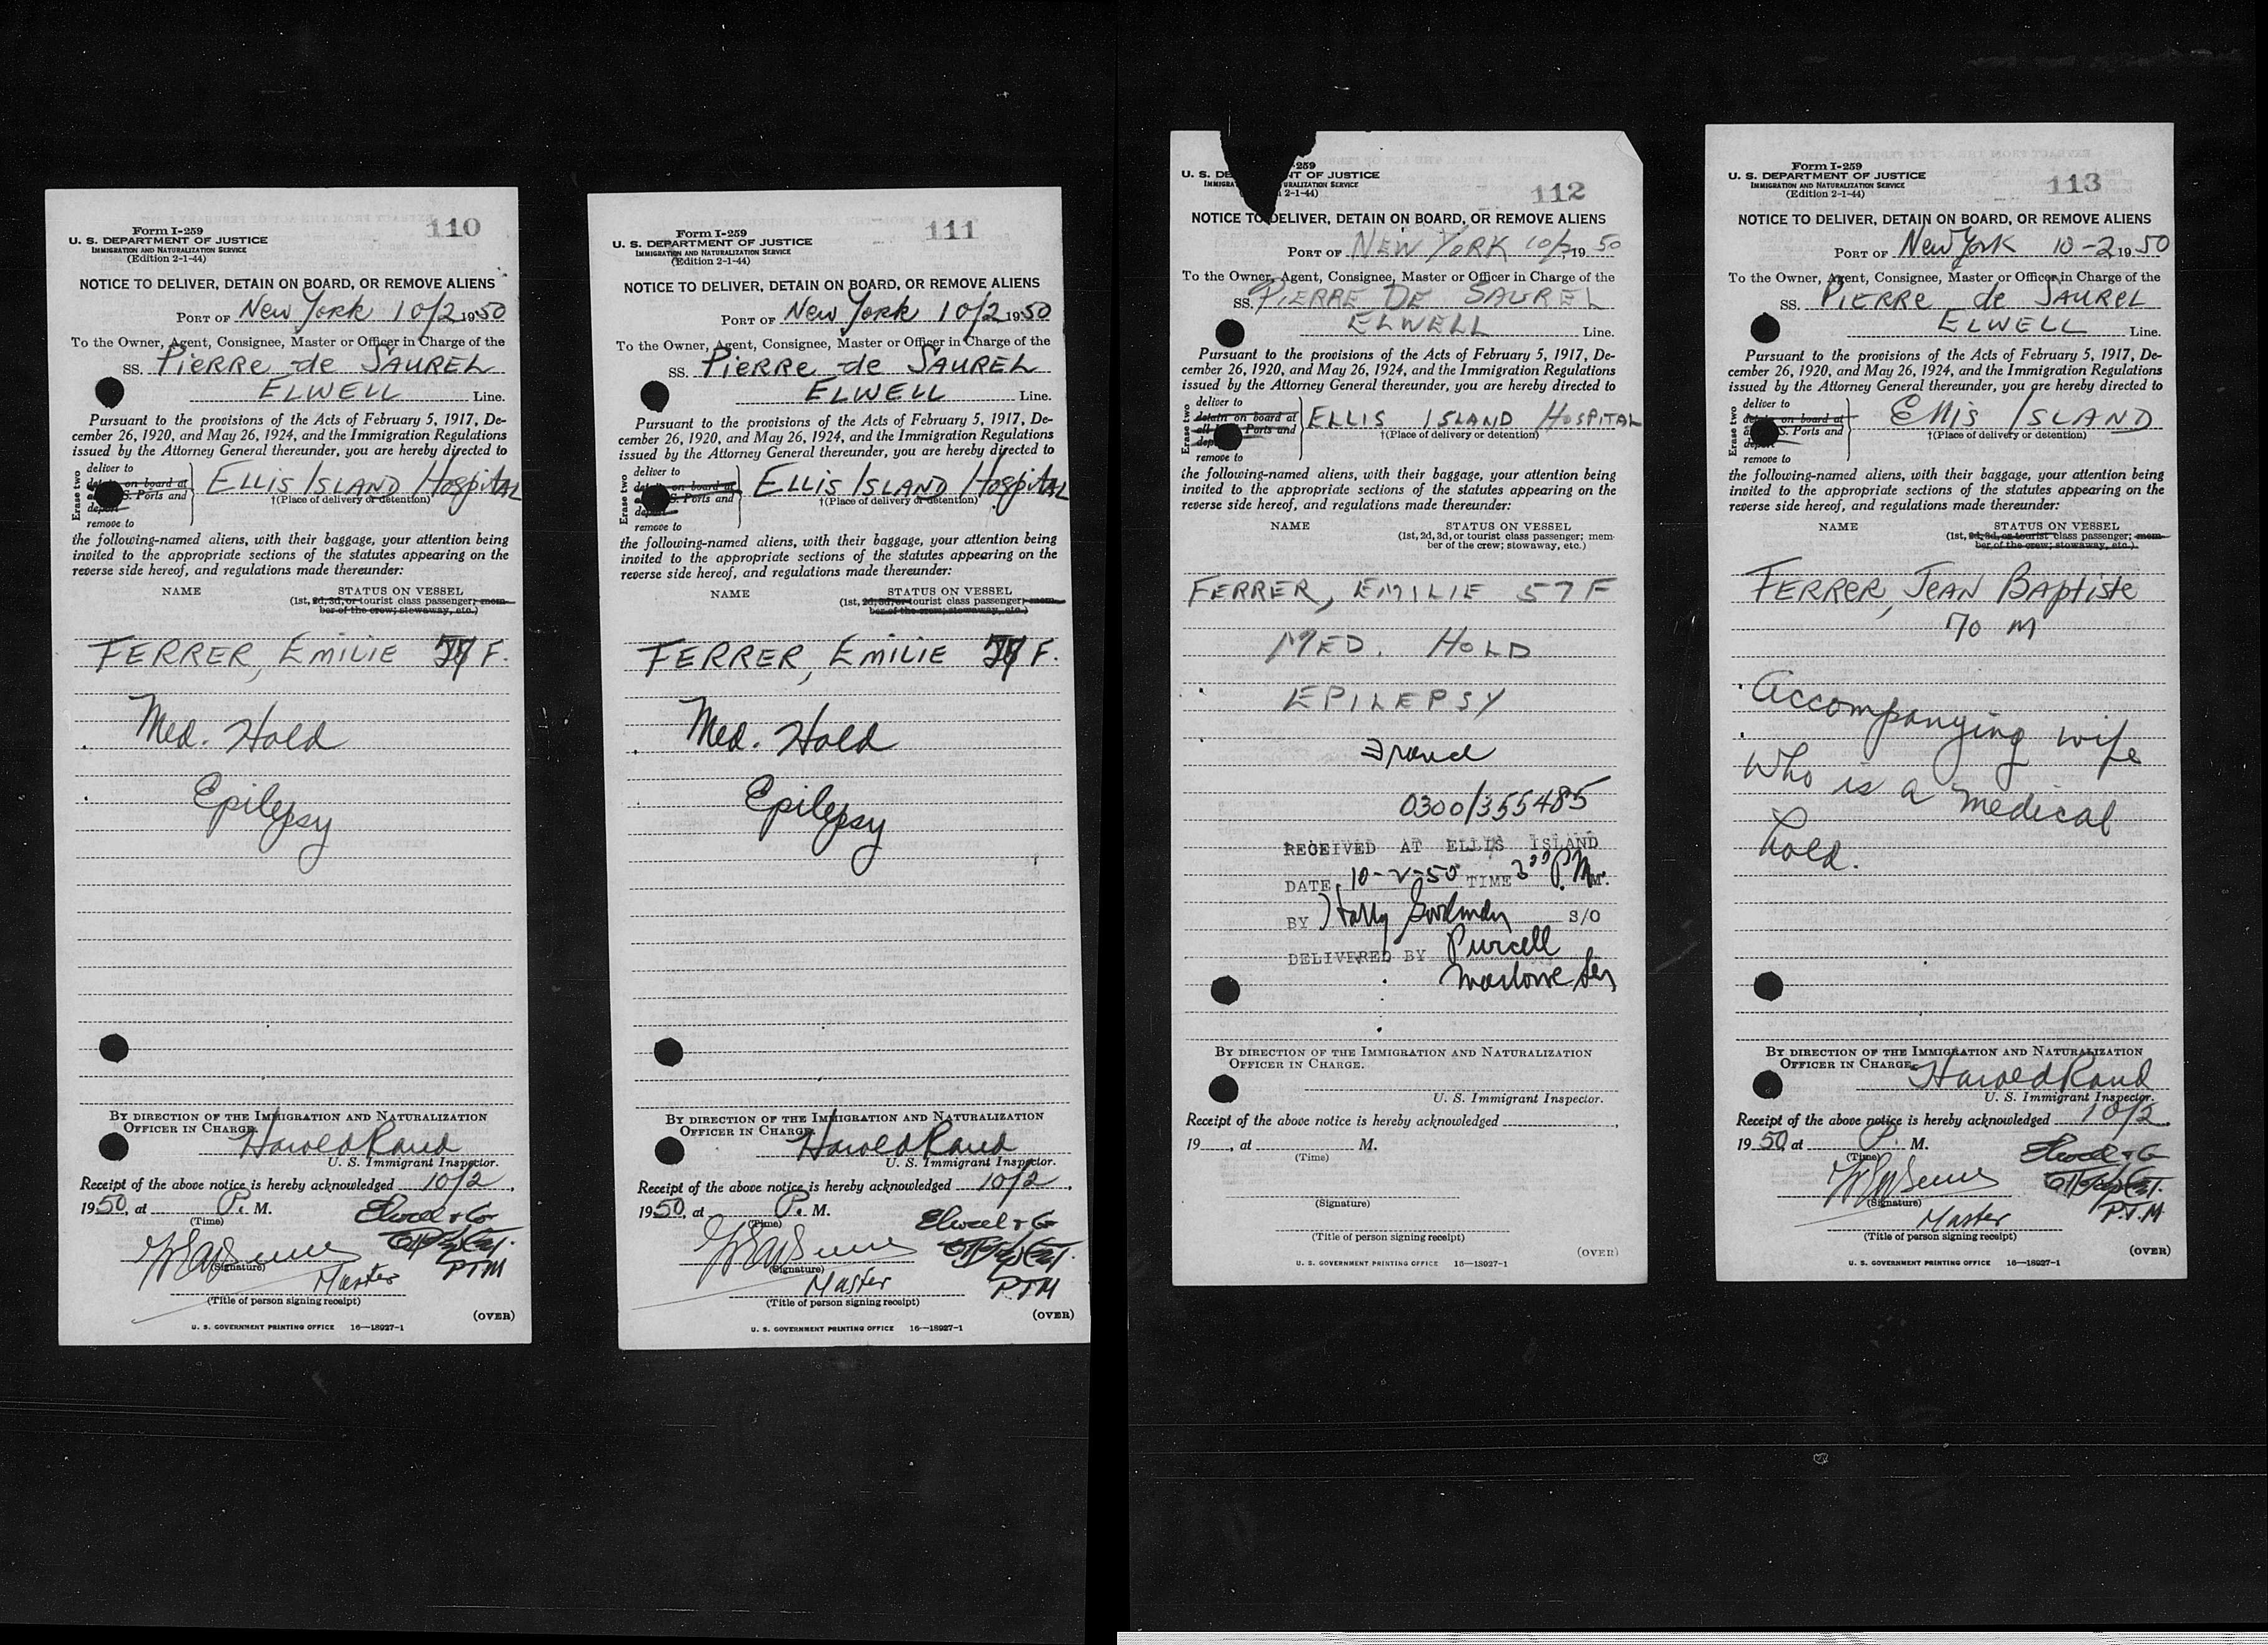 110
Form I-259
U. S. DEPARTMENT OF JUSTICE
IMMIGRATION AND NATURALIZATION SERVICE
(Edition 2-1-44)
NOTICE TO DELIVER, DETAIN ON BOARD, OR REMOVE ALIENS
PORT OF New York 10/2 1950
To the Owner, Agent, Consignee, Master or Officer in Charge of the
SS. Pierre de SAUREL
ELWELL Line.
Pursuant to the provisions of the Acts of February 5, 1917, De-
cember 26, 1920, and May 26, 1924, and the Immigration Regulations
issued by the Attorney General thereunder, you are hereby directed to
Erase two
deliver to
on board at
S. Ports and
remove to
ELLIS ISLAND Hospital
†(Place of delivery or detention)
the following-named aliens, with their baggage, your attention being
invited to the appropriate sections of the statutes appearing on the
reverse side hereof, and regulations made thereunder:
NAME STATUS ON VESSEL
(1st, 2d, 3d, or tourist class passenger; mem-
ber of the crew; stowaway, etc.)
FERRER, EMILIE F.
Med. Hold
Epilepsy
BY DIRECTION OF THE IMMIGRATION AND NATURALIZATION
OFFICER IN CHARGE.
Harold Rand
U. S. Immigrant Inspector.
Receipt of the above notice is hereby acknowledged 10/2,
1950, at P. M.
(Time)
(Signature)
PTM
Master
(Title of person signing receipt)
(OVER)
U. S. GOVERNMENT PRINTING OFFICE 16—18927-1
111
Form I-259
U. S. DEPARTMENT OF JUSTICE
IMMIGRATION AND NATURALIZATION SERVICE
(Edition 2-1-44)
NOTICE TO DELIVER, DETAIN ON BOARD, OR REMOVE ALIENS
PORT OF New York 10/2 1950
To the Owner, Agent, Consignee, Master or Officer in Charge of the
SS. Pierre de SAUREL
ELWELL Line.
Pursuant to the provisions of the Acts of February 5, 1917, De-
cember 26, 1920, and May 26, 1924, and the Immigration Regulations
issued by the Attorney General thereunder, you are hereby directed to
Erase two
deliver to
on board at
S. Ports and
remove to
ELLIS ISLAND Hospital
†(Place of delivery or detention)
the following-named aliens, with their baggage, your attention being
invited to the appropriate sections of the statutes appearing on the
reverse side hereof, and regulations made thereunder:
NAME STATUS ON VESSEL
(1st, 2d, 3d, or tourist class passenger; mem-
ber of the crew; stowaway, etc.)
FERRER, EMILIE F.
Med. Hold
Epilepsy
BY DIRECTION OF THE IMMIGRATION AND NATURALIZATION
OFFICER IN CHARGE.
Harold Rand
U. S. Immigrant Inspector.
Receipt of the above notice is hereby acknowledged 10/2,
1950, at P. M.
(Time)
(Signature)
PTM
Master
(Title of person signing receipt)
(OVER)
U. S. GOVERNMENT PRINTING OFFICE 16—18927-1
112
-259
U. S. DE NT OF JUSTICE
IMMIGRA URALIZATION SERVICE
2-1-44)
NOTICE TO DELIVER, DETAIN ON BOARD, OR REMOVE ALIENS
PORT OF NEW YORK 10/2, 1950
To the Owner, Agent, Consignee, Master or Officer in Charge of the
SS. PIERRE DE SAUREL
ELWELL Line.
Pursuant to the provisions of the Acts of February 5, 1917, De-
cember 26, 1920, and May 26, 1924, and the Immigration Regulations
issued by the Attorney General thereunder, you are hereby directed to
Erase two
deliver to
detain on board at
all Ports and
dep
remove to
ELLIS ISLAND HOSPITAL
†(Place of delivery or detention)
the following-named aliens, with their baggage, your attention being
invited to the appropriate sections of the statutes appearing on the
reverse side hereof, and regulations made thereunder:
NAME STATUS ON VESSEL
(1st, 2d, 3d, or tourist class passenger; mem-
ber of the crew; stowaway, etc.)
FERRER, EMILIE 57 F
MED. HOLD
EPILEPSY
0300/355485
RECEIVED AT ELLIS ISLAND
DATE 10-2-50 TIME 3 00 P.M.
BY Harry Goodman S/O
DELIVERED BY Purcell
BY DIRECTION OF THE IMMIGRATION AND NATURALIZATION
OFFICER IN CHARGE.
U. S. Immigrant Inspector.
Receipt of the above notice is hereby acknowledged
19 , at M.
(Time)
(Signature)
(Title of person signing receipt)
(OVER)
U. S. GOVERNMENT PRINTING OFFICE 16—18927-1
113
Form I-259
U. S. DEPARTMENT OF JUSTICE
IMMIGRATION AND NATURALIZATION SERVICE
(Edition 2-1-44)
NOTICE TO DELIVER, DETAIN ON BOARD, OR REMOVE ALIENS
PORT OF New York 10-2 1950
To the Owner, Agent, Consignee, Master or Officer in Charge of the
SS. PIERRE de SAUREL
ELWELL Line.
Pursuant to the provisions of the Acts of February 5, 1917, De-
cember 26, 1920, and May 26, 1924, and the Immigration Regulations
issued by the Attorney General thereunder, you are hereby directed to
Erase two
deliver to
on board at
S. Ports and
remove to
Ellis ISLAND
†(Place of delivery or detention)
the following-named aliens, with their baggage, your attention being
invited to the appropriate sections of the statutes appearing on the
reverse side hereof, and regulations made thereunder:
NAME STATUS ON VESSEL
(1st, 2d, 3d, or tourist class passenger; mem-
ber of the crew; stowaway, etc.)
FERRER, JEAN Baptiste
70 M
Accompanying wife
who is a medical
hold.
BY DIRECTION OF THE IMMIGRATION AND NATURALIZATION
OFFICER IN CHARGE.
Harold Rand
U. S. Immigrant Inspector.
Receipt of the above notice is hereby acknowledged 10/2,
1950, at P. M.
(Time)
(Signature)
P.T.M
Master
(Title of person signing receipt)
(OVER)
U. S. GOVERNMENT PRINTING OFFICE 16—18927-1